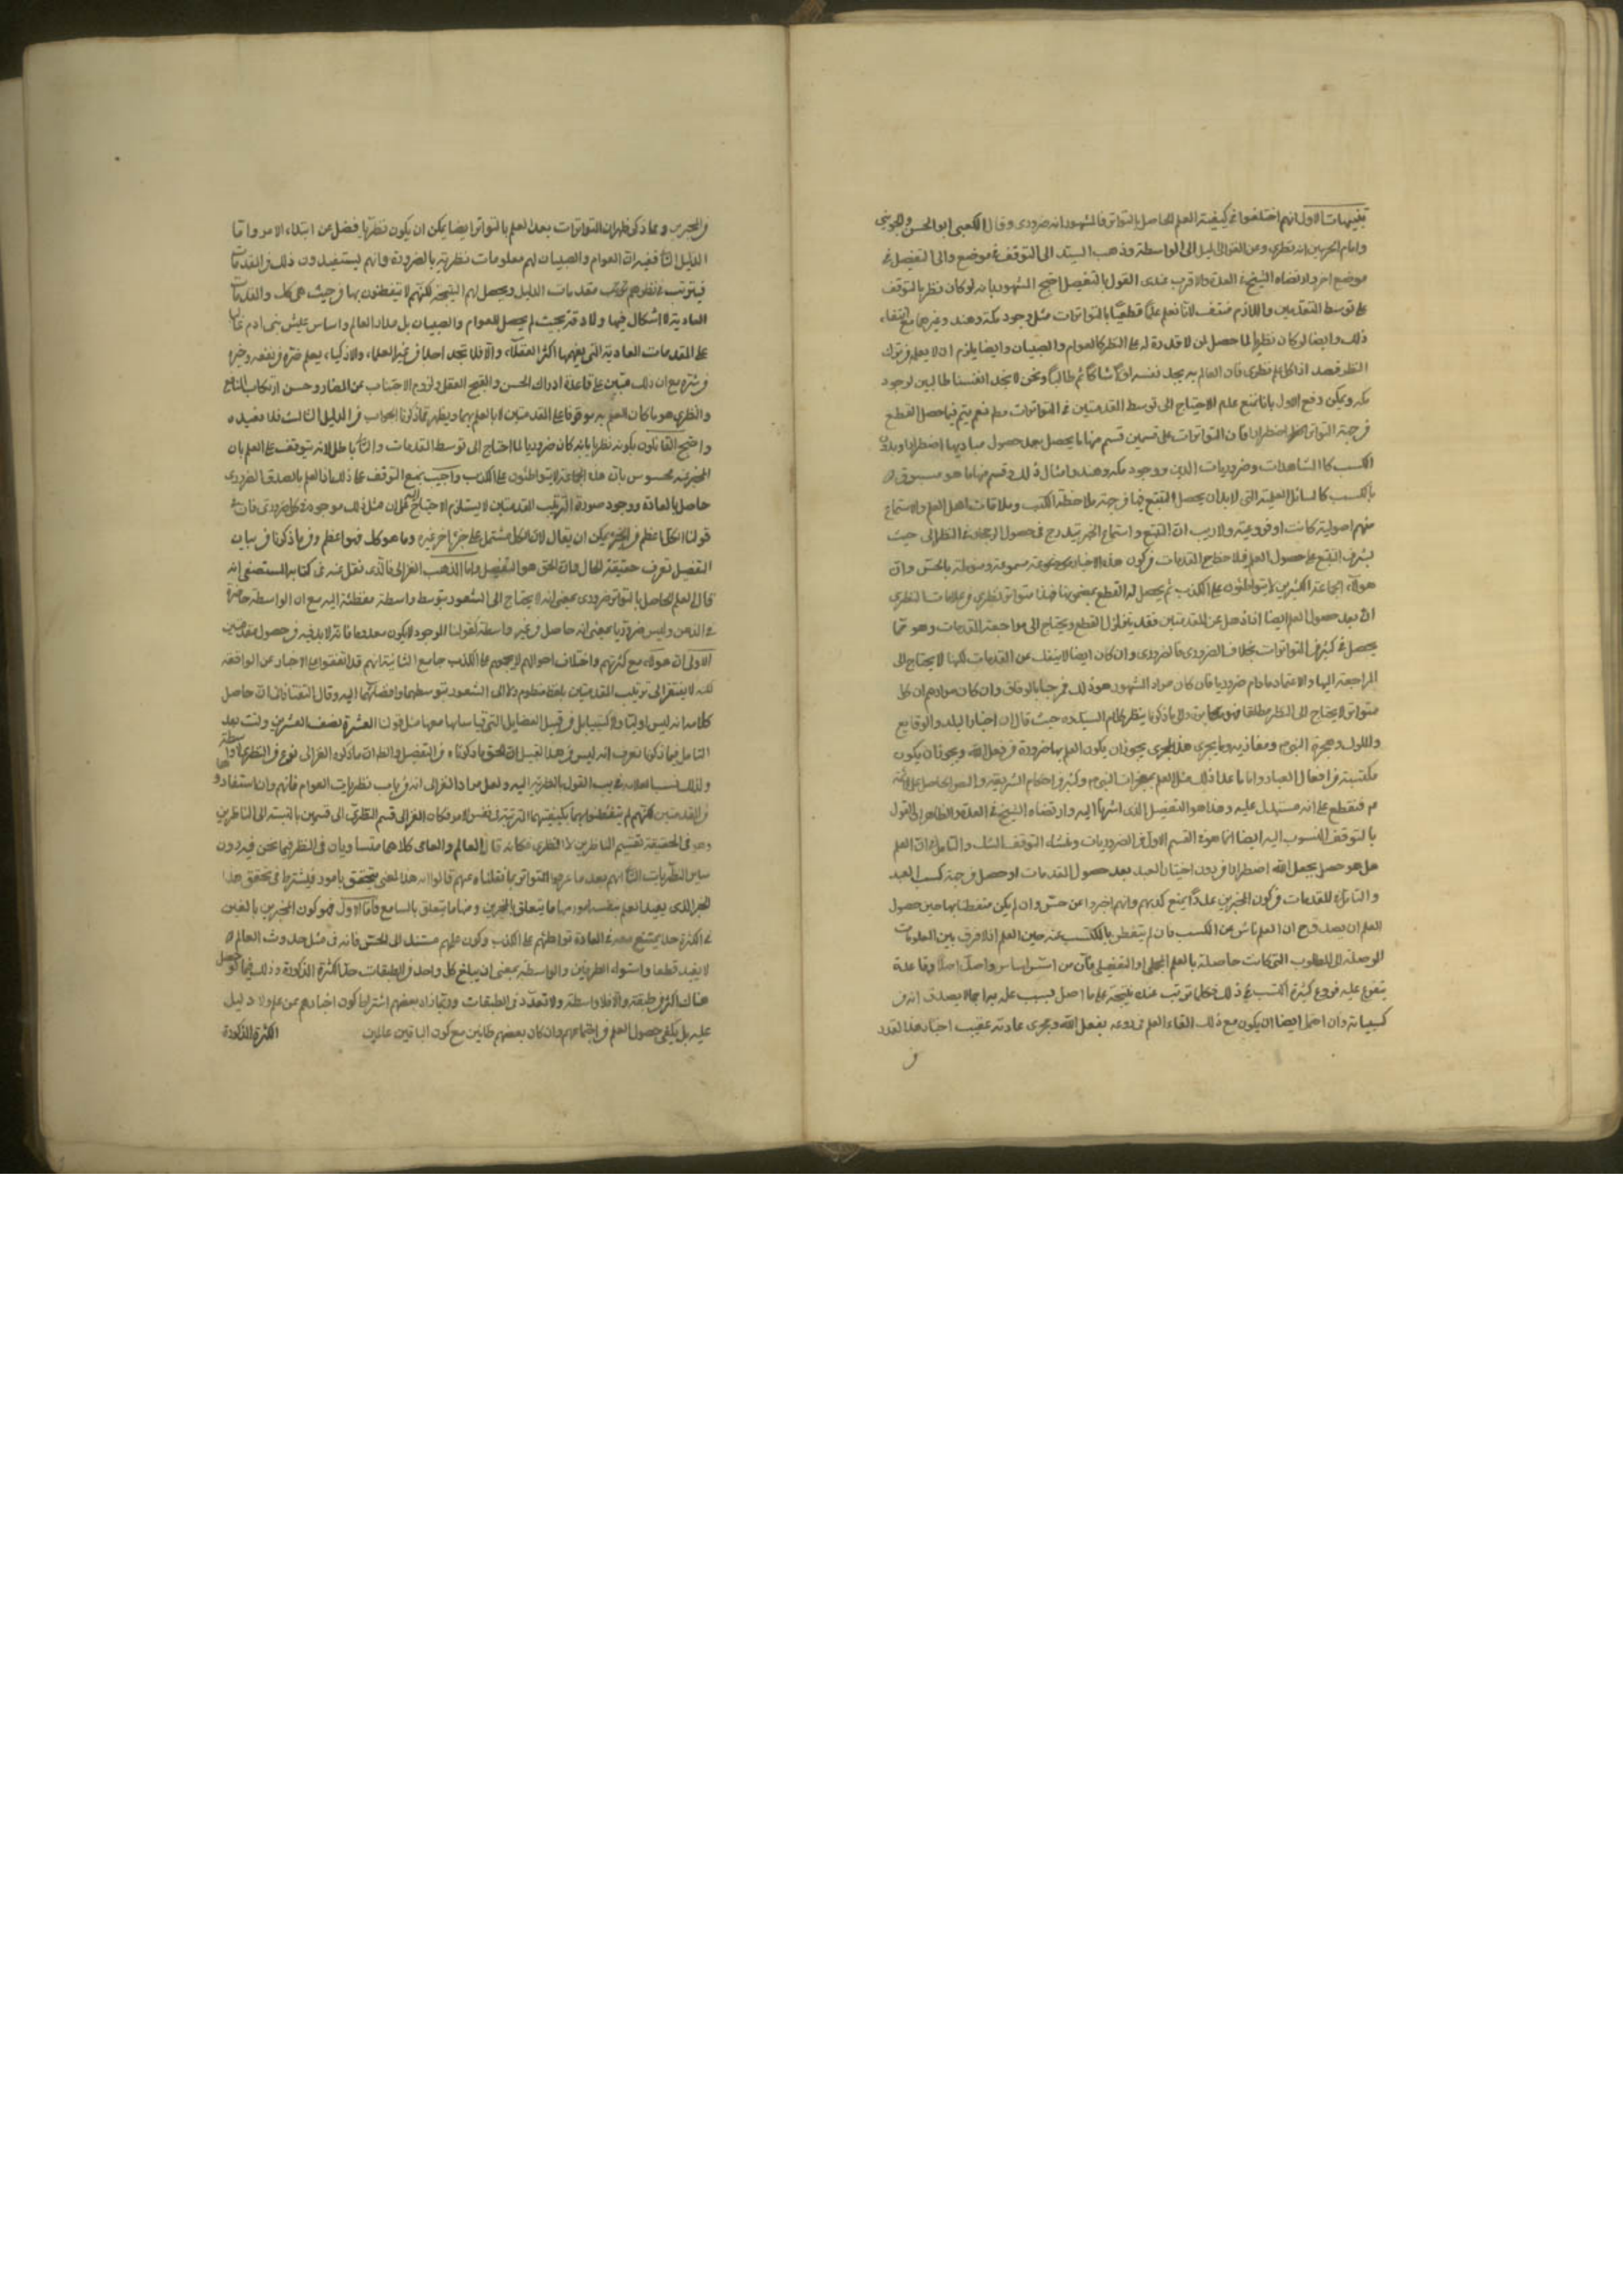 تنبيهات الاول انهم اختلفوا في كيفية العلم الحاصل بالتواتر فالمشهور انه ضروري وقال الكعبي ابو الحسن والجويني
وامام الحرمين انه نظري وعن الغزالي الميل الى الواسطة وذهب السيد الى التوقف في موضع والى التفصيل في
موضع اخر وارتضاه الشيخ في العدة والاقرب عندي القول بالتفصيل احتج المشهور بانه لو كان نظريا لتوقف
على توسط المقدمتين واللازم منتف لانا نعلم علما قطعيا بالمتواترات مثل وجود مكة وهند وغيرهما مع انتفاء
ذلك وايضا لو كان نظريا لما حصل لمن لا قدرة له على النظر كالعوام والصبيان وايضا يلزم ان لا يعلمه من ترك
النظر قصدا اذ كل علم نظري فان العالم به يجد نفسه اولا شاكا ثم طالبا ونحن لا نجد انفسنا طالبين لوجود
مكة ويمكن دفع الاول بانا نمنع عدم الاحتياج الى توسط المقدمتين في المتواترات مطلقا نعم يتم فيما حصل القطع
من جهة التواتر اضطرارا فان المتواترات على قسمين قسم منها ما يحصل بعد حصول مباديها اضطرارا وبدون
الكسب كالمشاهدات وضروريات الدين ووجود مكة وهند وامثال ذلك وقسم منها ما هو مسبوق
بالكسب كالمسائل العلمية التي لابد ان يحصل التتبع فيها من جهة ملاحظة الكتب وملاقات اهل العلم والاستماع
منهم اصولية كانت او فروعية ولا ريب ان التتبع واستماع الخبر يتدرج في حصول الرجحان في النظر الى حيث
يشرف التتبع على حصول العلم فيلاحظ المقدمات من كون هذه الاخبار مسموعة ومنوطة بالحس وان
هؤلاء الجماعة الكثيرين لا يتواطئون على الكذب ثم يحصل له القطع بمضمونها فهذا متواتر نظري ومن علامات النظري
انه بعد حصول العلم ايضا اذا ذهل عن المقدمتين فقد يتزلزل القطع ويحتاج الى مراجعة المقدمات وهو مما
يحصل في كثير من المتواترات بخلاف الضروري فالضروري وان كان ايضا لا ينفك عن المقدمات لكنها لا يحتاج الى
المراجعة اليها والاعتماد مادام ضروريا فان كان مراد المشهور هو ذلك فمرحبا بالوفاق وان كان مرادهم ان كل
متواتر لا يحتاج الى النظر مطلقا فهو مكابرة والى ما ذكرنا ينظر كلام السيد ره حيث قال ان اخبار البلد والوقايع
والملوك وهجرة النبي ص ومغازيه وما يجري هذا المجرى يجوز ان يكون العلم بها ضرورة من فعل الله ويجوز ان يكون
مكتسبة من افعال العباد واما ما عدا ذلك مثل العلم بمعجزات النبي ص وكثير من احكام الشريعة والنص الحاصل على الائمة
م فنقطع على انه مستدل عليه وهذا هو التفصيل الذي اشرنا اليه وارتضاه الشيخ في العدة والظاهر ان القول
بالتوقف المنسوب اليه ايضا انما هو في القسم الاول من الضروريات ومنشاء التوقف الشك والتامل في ان العلم
هل هو حصل بجعل الله اضطرارا من دون اختيار العبد بعد حصول المقدمات او حصل من جهة كسب العبد
والتامل في المقدمات من كون المخبرين عددا يمتنع كذبهم وانهم اخبروا عن حس وان لم يكن متفطنا بها حين حصول
العلم ان يصدق ح ان العلم ناش من الكسب فان لم يتفطن بالمكتسب عنه حين العلم اذ لا فرق بين المعلومات
الموصلة الى المطلوب التي كانت حاصلة بالعلم الجملي او التفصيلي فان من اسس اساسا واصل اصلا وقاعدة
يتفرع عليه فروع كثيرة اكتسب في ذلك فكلما ترتب عنده نتيجة على ما اصل فبسبب علمه به اجمالا يصدق انه من
كسبياته وان احتمل ايضا ان يكون مع ذلك القاء العلم في روعه بفعل الله وجرى عادته عقيب اخبار هذا القدر
من
من المخبرين ومما ذكر ظهر ان المتواترات بعد العلم بالتواتر ايضا يمكن ان يكون نظريا فضلا عن ابتداء الامر واما
الدليل الثاني ففيه ان العوام والصبيان لهم معلومات نظرية بالضرورة وانهم يستفيدون ذلك من المقدمات
فيترتب في نظرهم مقدمات الدليل ويحصل لهم النتيجة لكنهم لا يتفطنون بها من حيث هي كك والمقدمات
العادية لا اشكال فيها ولا دقة بحيث لم يحصل للعوام والصبيان بل مدار العالم واساس عيش بني ادم غالبا
على المقدمات العادية التي يفهمها اكثر العقلاء والا فلا تجد احدا من غير العلماء والاذكياء يعلم ضره من نفعه وخيره
من شره مع ان ذلك مبتن على قاعدة ادراك الحسن والقبح العقلي ولزوم الاجتناب عن المضار وحسن ارتكاب المنافع
والنظري هو ما كان العلم به موقوفا على المقدمتين لا بالعلم بهما ويظهر مما ذكرنا الجواب من الدليل الثالث فلا نعيده
واحتج القائلون بكونه نظريا بانه لو كان ضروريا لما احتاج الى توسط المقدمات والتالي باطل لانه يتوقف على العلم بان
المخبر عنه محسوس بان هذه الجماعة لا يتواطئون على الكذب واجيب بمنع التوقف على ذلك اذ العلم بالصدق الضروري
حاصل بالعادة ووجود صورة الترتيب المقدمتين لا يستلزم الاحتياج اليه على ان مثل ذلك موجود في كل ضروري فان في
قولنا الكل اعظم من الجزء يمكن ان يقال لان الكل مشتمل على جزء اخر غيره وما هو كك فهو اعظم ومن ما ذكرنا في بيان
التفصيل تعرف حقيقة الحال فان الحق هو التفصيل واما المذهب الغزالي فالذي نقل عنه في كتابه المستصفى انه
قال العلم الحاصل بالتواتر ضروري بمعنى انه لا يحتاج الى الشعور بتوسط واسطة مفضية اليه مع ان الواسطة حاضرة
في الذهن وليس ضروريا بمعنى انه حاصل من غير واسطة كقولنا الموجود لا يكون معدوما فانه لا بد فيه من حصول مقدمتين
الاولى ان هؤلاء مع كثرتهم واختلاف احوالهم لا يجمعهم على الكذب جامع الثانية انهم قد اتفقوا على الاخبار عن الواقعة
لكنه لا يفتقر الى ترتيب المقدمتين بلفظ منظوم ولا الى الشعور بتوسطهما وافضائهما اليه وقال التفتازاني ان حاصل
كلامه انه ليس اوليا ولا كسبيا بل من قبيل القضايا التي قياساتها معها مثل قولنا العشرة نصف العشرين وانت بعد
التامل فيما ذكرنا تعرف انه ليس من هذا القبيل ان الحق ما ذكرناه من التفصيل والظاهر ان ما ذكره الغزالي نوع من النظريات
ولذلك نسب العلامة في يب القول بالنظرية اليه ولعل مراد الغزالي انه من باب نظريات العوام فانهم وان استفادوها
من المقدمتين لكنهم لم يتفطنوا بهما بكيفيتهما الترتيبة في نفس الامر فكان الغزالي قسم النظري الى قسمين بالنسبة الى الناظرين
وهو في الحقيقة تقسيم الناظرين لا النظري فكانه قال العالم والعامي كلاهما متساويان في النظر فيما نحن فيه دون
ساير النظريات الثاني انهم بعد ما عرفوا المتواتر بما نقلناه عنهم قالوا انه هذا المعنى يتحقق بامور فيشترط في تحقق هذا
الخبر الذي يفيد العلم بنفسه امور منها ما يتعلق بالمخبرين ومنها ما يتعلق بالسامع فاما الاول فهو كون المخبرين بالغين
في الكثرة حدا يمتنع معه في العادة تواطئهم على الكذب وكون علمهم مستندا الى الحس فانه في مثل حدوث العالم لا
لا يفيد قطعا واستواء الطرفين والواسطة بمعنى ان يبلغ كل واحد من الطبقات حد الكثرة المذكورة وذلك فيما لو حصل
هناك اكثر من طبقة والا فلا واسطة ولا تعدد في الطبقات وربما زاد بعضهم اشتراط كون اخبارهم عن علم ولا دليل
عليه بل يكفي حصول العلم من اجتماعهم وان كان بعضهم ظانين مع كون الباقين عالمين الكثرة المذكورة